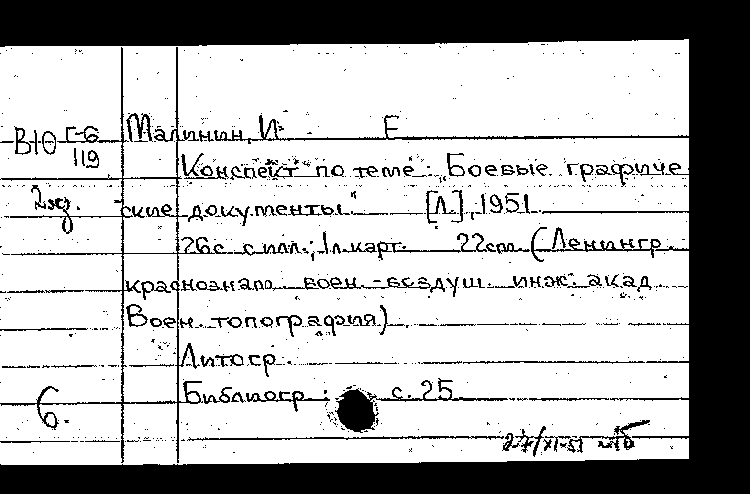 Малинин, И. Е
ВЮ Г-6
119
Конспект по теме: "Боевые графиче
2 экз. ские документы" [Л.], 1951.
26с. с илл.; 1л. карт. 22см (Ленингр.
краснознам. воен.-воздуш. инж. акад.
Воен. топография)
Литогр.
Библиогр.: с. 25
6.
27/XI-51